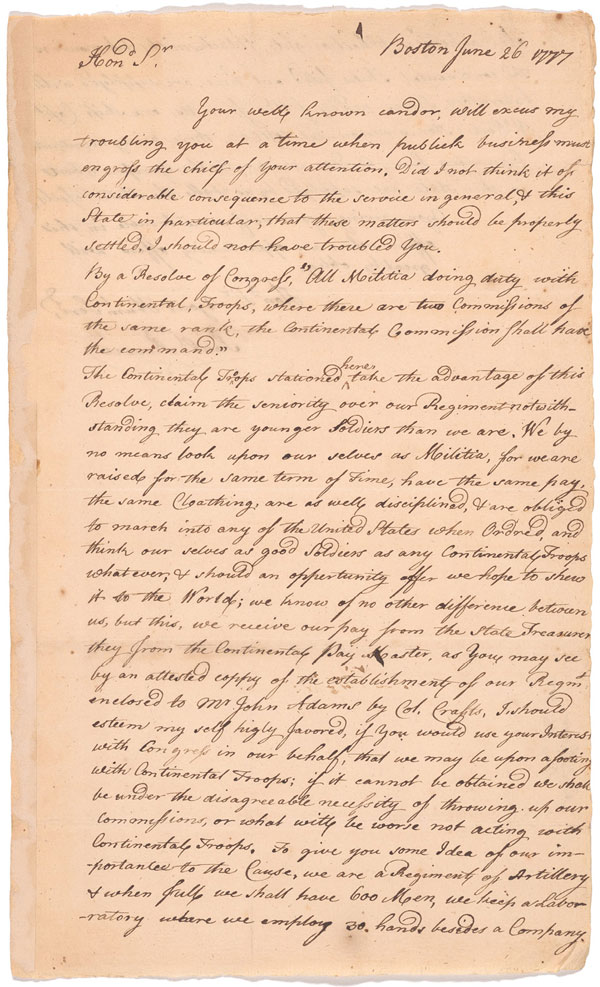 Boston June 26 1777
Hond. Sr.
Your well known candor, will excus my
troubling you at a time when publick business must
engross the chief of your attention. Did I not think it of
considerable consequence to the service in general, & this
State in particular, that these matters should be properly
settled, I should not have troubled You.
By a Resolve of Congress, "All Militia doing duty with
Continental, Troops, where there are two Commissions of
the same rank, the Continental Commission shall have
the command."
The Continental Troops stationed here take the advantage of this
Resolve, claim the seniority over our Regiment notwith-
standing they are younger Soldiers than we are. We by
no means look upon our selves as Militia, for we are
raised for the same term of Time, have the same pay,
the same Cloathing, are as well disciplined, & are obliged
to march into any of the United States when Ordred, and
think our selves as good Soldiers as any Continental Troops
whatever, & should an oppertunity offer we hope to shew
it to the World; we know of no other difference between
us, but this, we receive our pay from the State Treasurer
they from the Continental Pay Master, as You may see
by an attested coppy of the establishment of our Regmt.
enclosed to Mr John Adams by Col. Crafts, I should
esteem my self higly favored, if You would use your Interest
with Congress in our behalf, that we may be upon a footing
with Continental Troops; if it cannot be obtained we shall
be under the disagreeable necessity of throwing up our
commissions, or what will be worse not acting with
Continental Troops. To give you some Idea of our im-
-portance to the Cause, we are a Regiment of Artillery
& when full we shall have 600 Men, we keep a Labor-
-ratory where we employ 30 hands besides a Company